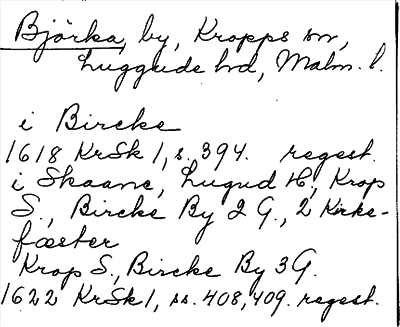 Björka, by, Kropps sn,
Luggude hd, Malm. l.
i Bircke
1618 KrSk 1, s. 394. regest.
i Skaane, Lugud H, Krop
S., Bircke By 2 G., 2 Kirke-
fæster
Krop S., Bircke By 3 G.
1622 KrSk 1, ss. 408, 409. regest.